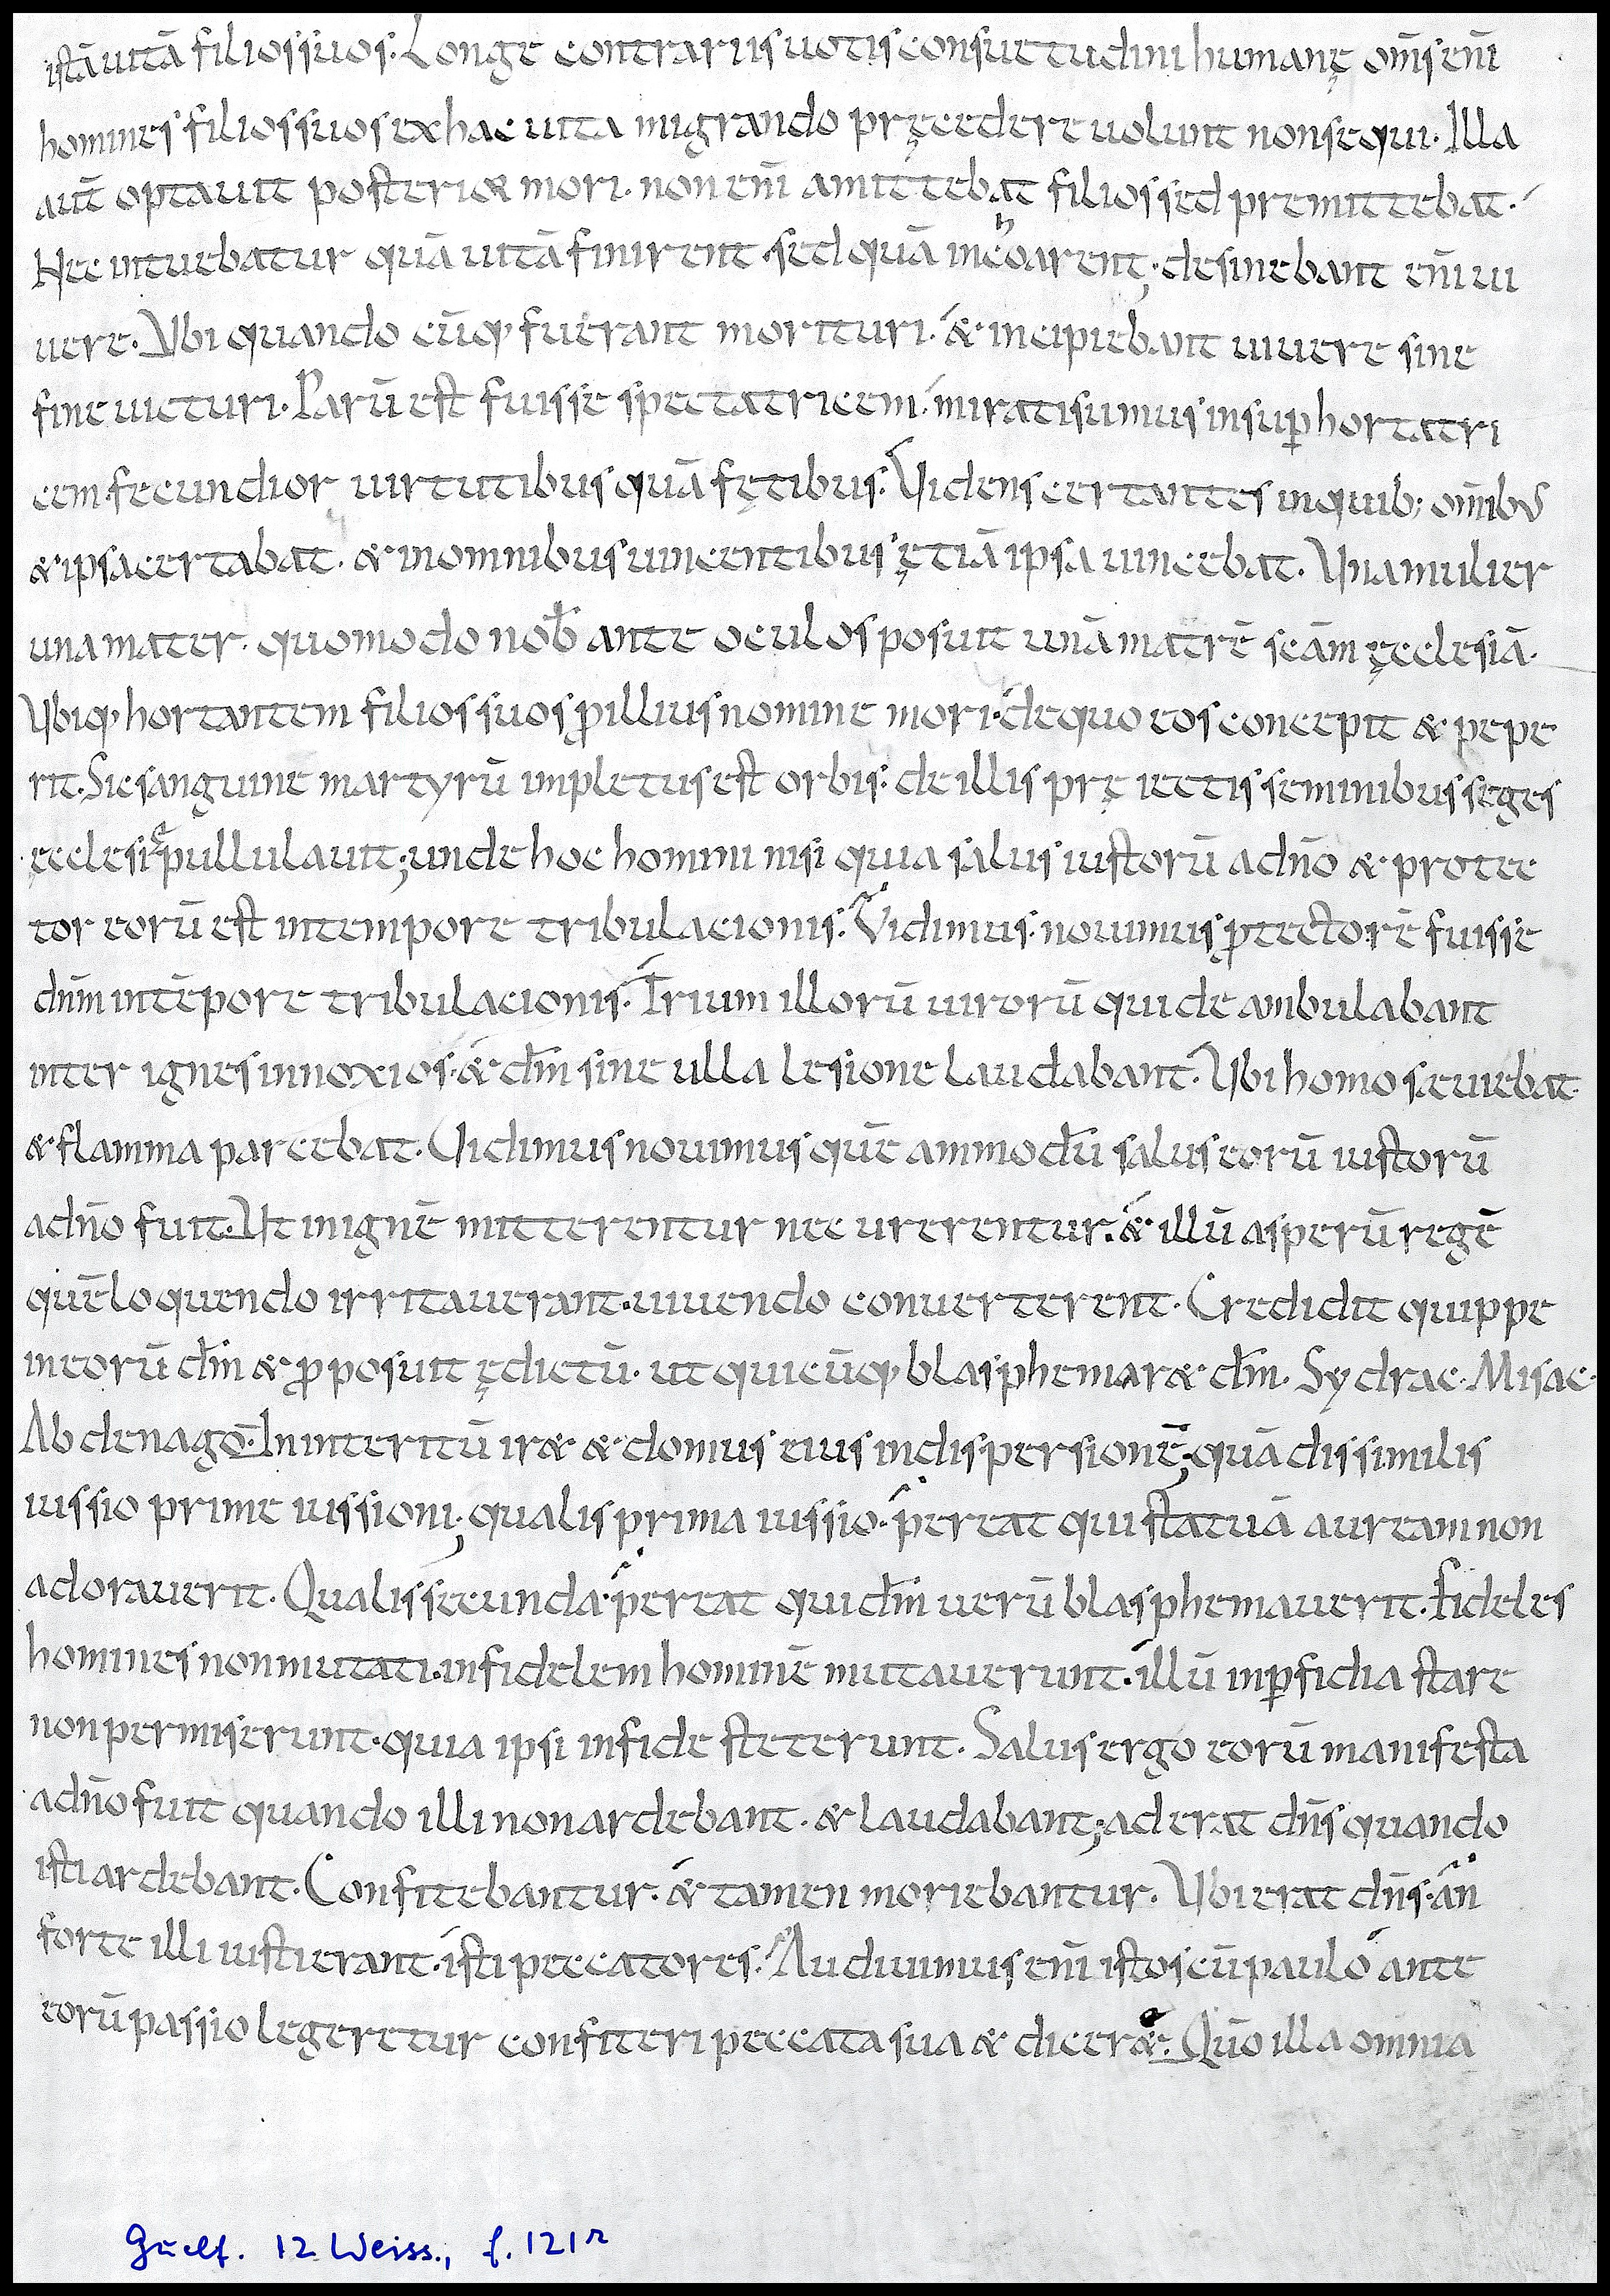 istā uitā filios suos. Longe contrariis uotis consuetudini humanę om̄s enī
homines filios suos ex hac uita migrando pręcedere uolunt non sequi. Illa
aut̄ optauit posterior mori. non enī amittebat filios sed premittebat.
Nec intuebatur quā uitā finirent. sed quā inchoarent; desinebant enī ui
uere. Ubi quando cūq; fuerant morituri. & incipiebant uiuere sine
fine uicturi. Parū est fuisse spectatricem. mirati sumus insup̄ hortatri
cem. fecundior uirtutibus quā fętibus. Videns certantes in quib; om̄ibus
& ipsa certabat. & in omnibus uincentibus ętiā ipsa uincebat. Una mulier
una mater. quomodo nob̄ ante oculos posuit unā matrē scām ęcclesiā.
Ubiq; hortantem filios suos p illius nomine mori. de quo eos concepit & pepe
rit. Sic sanguine martyrū impletus est orbis. de illis prę iectis seminibus seges
ęcclesię pullulauit; unde hoc homini nisi quia salus iustorū a dn̄o & protec
tor eorū est in tempore tribulacionis. Vidimus. nouimus ptectorē fuisse
dn̄m in tēpore tribulacionis. Trium illorū uirorū qui de ambulabant
inter ignes innoxios. & dm̄ sine ulla lesione laudabant. Ubi homo sęuiebat.
& flamma parcebat. Vidimus nouimus quē ammodū salus eorū iustorū
a dn̄o fuit. Ut in ignē mitterentur nec urerentur. & illū asperū regē
quē loquendo irritauerant. uiuendo conuerterent. Credidit quippe
in eorū dm̄ & pposuit ędictū. ut quicūq; blasphemar& dm̄. Sydrac. Misac.
Abdenago. In interitū ir& & domus eius in dispersionē; quā dissimilis
iussio prime iussioni; qualis prima iussio. pereat qui statuā auream non
adorauerit. Qualis secunda. pereat qui dm̄ uerū blasphemauerit. Fideles
homines non mutati. infidelem hominē mutauerunt. illū in p̄fidia stare
non permiserunt. quia ipsi in fide steterunt. Salus ergo eorū manifesta
a dn̄o fuit quando illi non ardebant. & laudabant; aderat dn̄s quando
isti ardebant. Confitebantur. & tamen moriebantur. Ubi erat dn̄s. an
forte illi iusti erant. isti peccatores. Audiuimus enī istos cū paulo ante
eorū passio legeretur confiteri peccata sua & dicer&. Quō illa omnia
Guelf. 12 Weiss., f. 121r